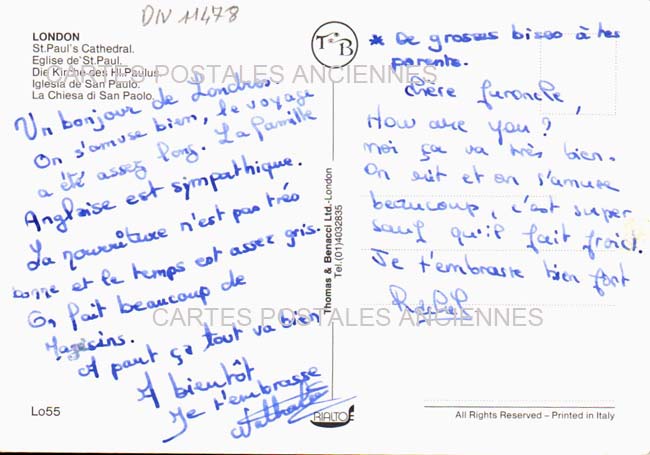 DIV 11478
LONDON
St.Paul's Cathedral.
Eglise de St.Paul.
Die Kirche des Hl.Paulus
Iglesia de San Paolo.
La Chiesa di San Paolo.
CARTES POSTALES ANCIENNES
Un bonjour de Londres
On s'amuse bien, le voyage
a été assez long. La famille
Anglaise est sympathique.
La nourriture n'est pas très
bonne et le temps est assez gris.
On fait beaucoup de
Magasins.
A part ça tout va bien
A bientôt
Je t'embrasse
Nathalie
Lo55
TB
Thomas & Benacci Ltd.-London
Tel.(01)4032835
RIALTO
* De grosses bises à tes
parents.
Chère furoncle,
How are you?
Moi ça va très bien.
On rit et on s'amuse
beaucoup, c'est super
sauf qu'il fait froid.
Je t'embrasse bien fort
CARTES POSTALES ANCIENNES
All Rights Reserved – Printed in Italy